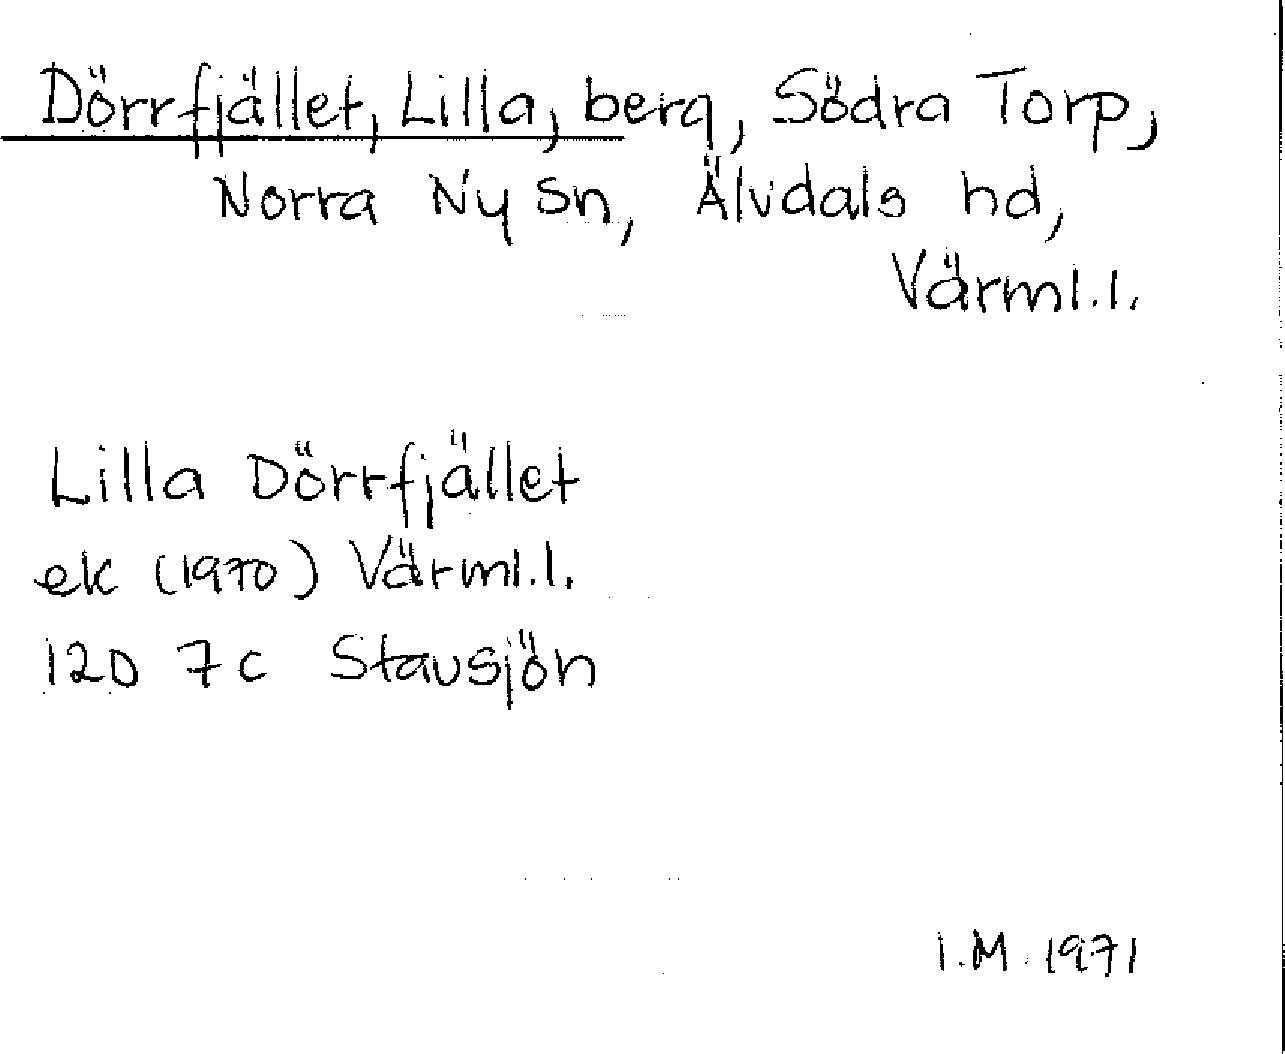 Dörrfjället, Lilla, berg, Södra Torp,
Norra Ny sn, Älvdals hd,
Värml.l.
Lilla Dörrfjället
ek (1970) Värml.l.
12D 7c Stavsjön
I.M. 1971